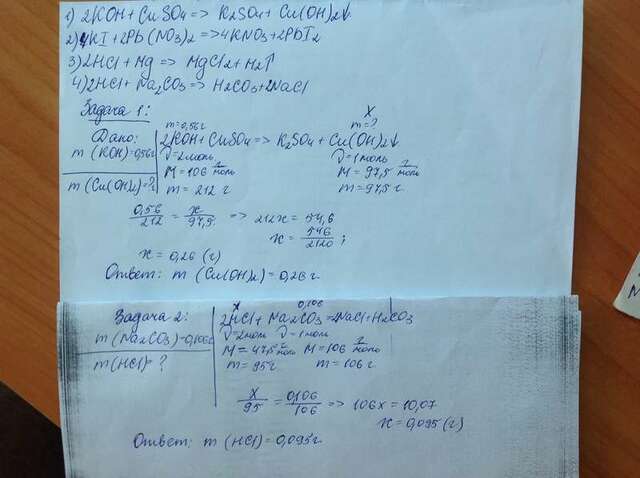 1) 2KOH + CuSO4 => K2SO4 + Cu(OH)2↓
2) 4KI + 2Pb(NO3)2 => 4KNO3 + 2PbI2
3) 2HCl + Mg => MgCl2 + H2↑
4) 2HCl + Na2CO3 => H2CO3 + 2NaCl
Задача 1:
Дано:
m (KOH) = 0,56г
m (Cu(OH)2) = ?
m = 0,56г
X
m = ?
2KOH + CuSO4 => K2SO4 + Cu(OH)2↓
ν = 2моль ν = 1моль
M = 106 г/моль M = 97,5 г/моль
m = 212 г m = 97,5 г
0,56/212 = x/97,5 => 212x = 54,6
x = 546/2120 ;
x = 0,26 (г)
Ответ: m (Cu(OH)2) = 0,26г.
Задача 2:
m (Na2CO3) = 0,106г
m (HCl) = ?
X 0,106
2HCl + Na2CO3 = 2NaCl + H2CO3
ν = 2моль ν = 1моль
M = 47,5 г/моль M = 106 г/моль
m = 95г m = 106г
X/95 = 0,106/106 => 106x = 10,07
x = 0,095 (г)
Ответ: m (HCl) = 0,095г.